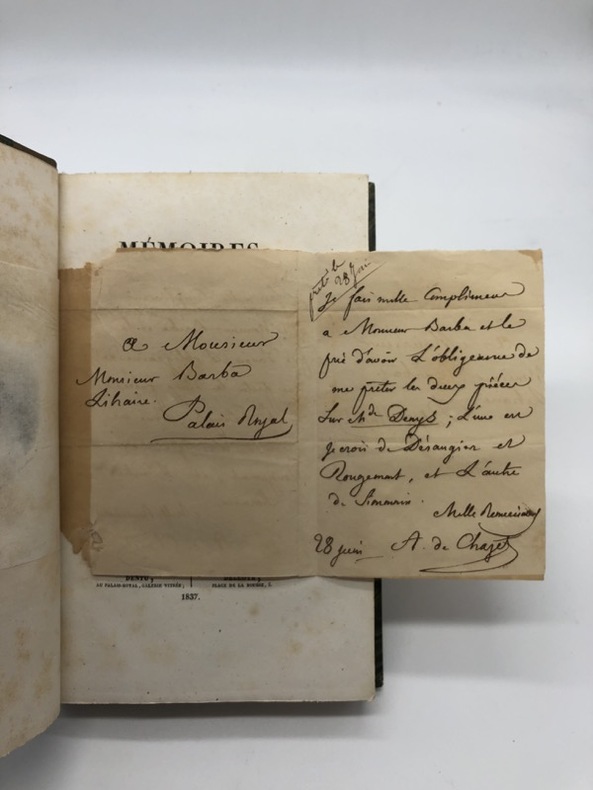 MÉMOIRES
a Monsieur
Monsieur Barba
Libraire.
Palais Royal
prêté le
28 Juin
Je fais mille Complimens
a Monsieur Barba et le
prie d'avoir L'obligeance de
me preter les deux pièces
Sur Md. Denys ; L'une est
je crois de Désaugier et
Rougemont, et L'autre
de Simonnin.
Mille Remerciemens
28 juin A. de Chazet
DENTU,
AU PALAIS-ROYAL, GALERIE VITRÉE;
DELAUNAY,
PLACE DE LA BOURSE,
1837.